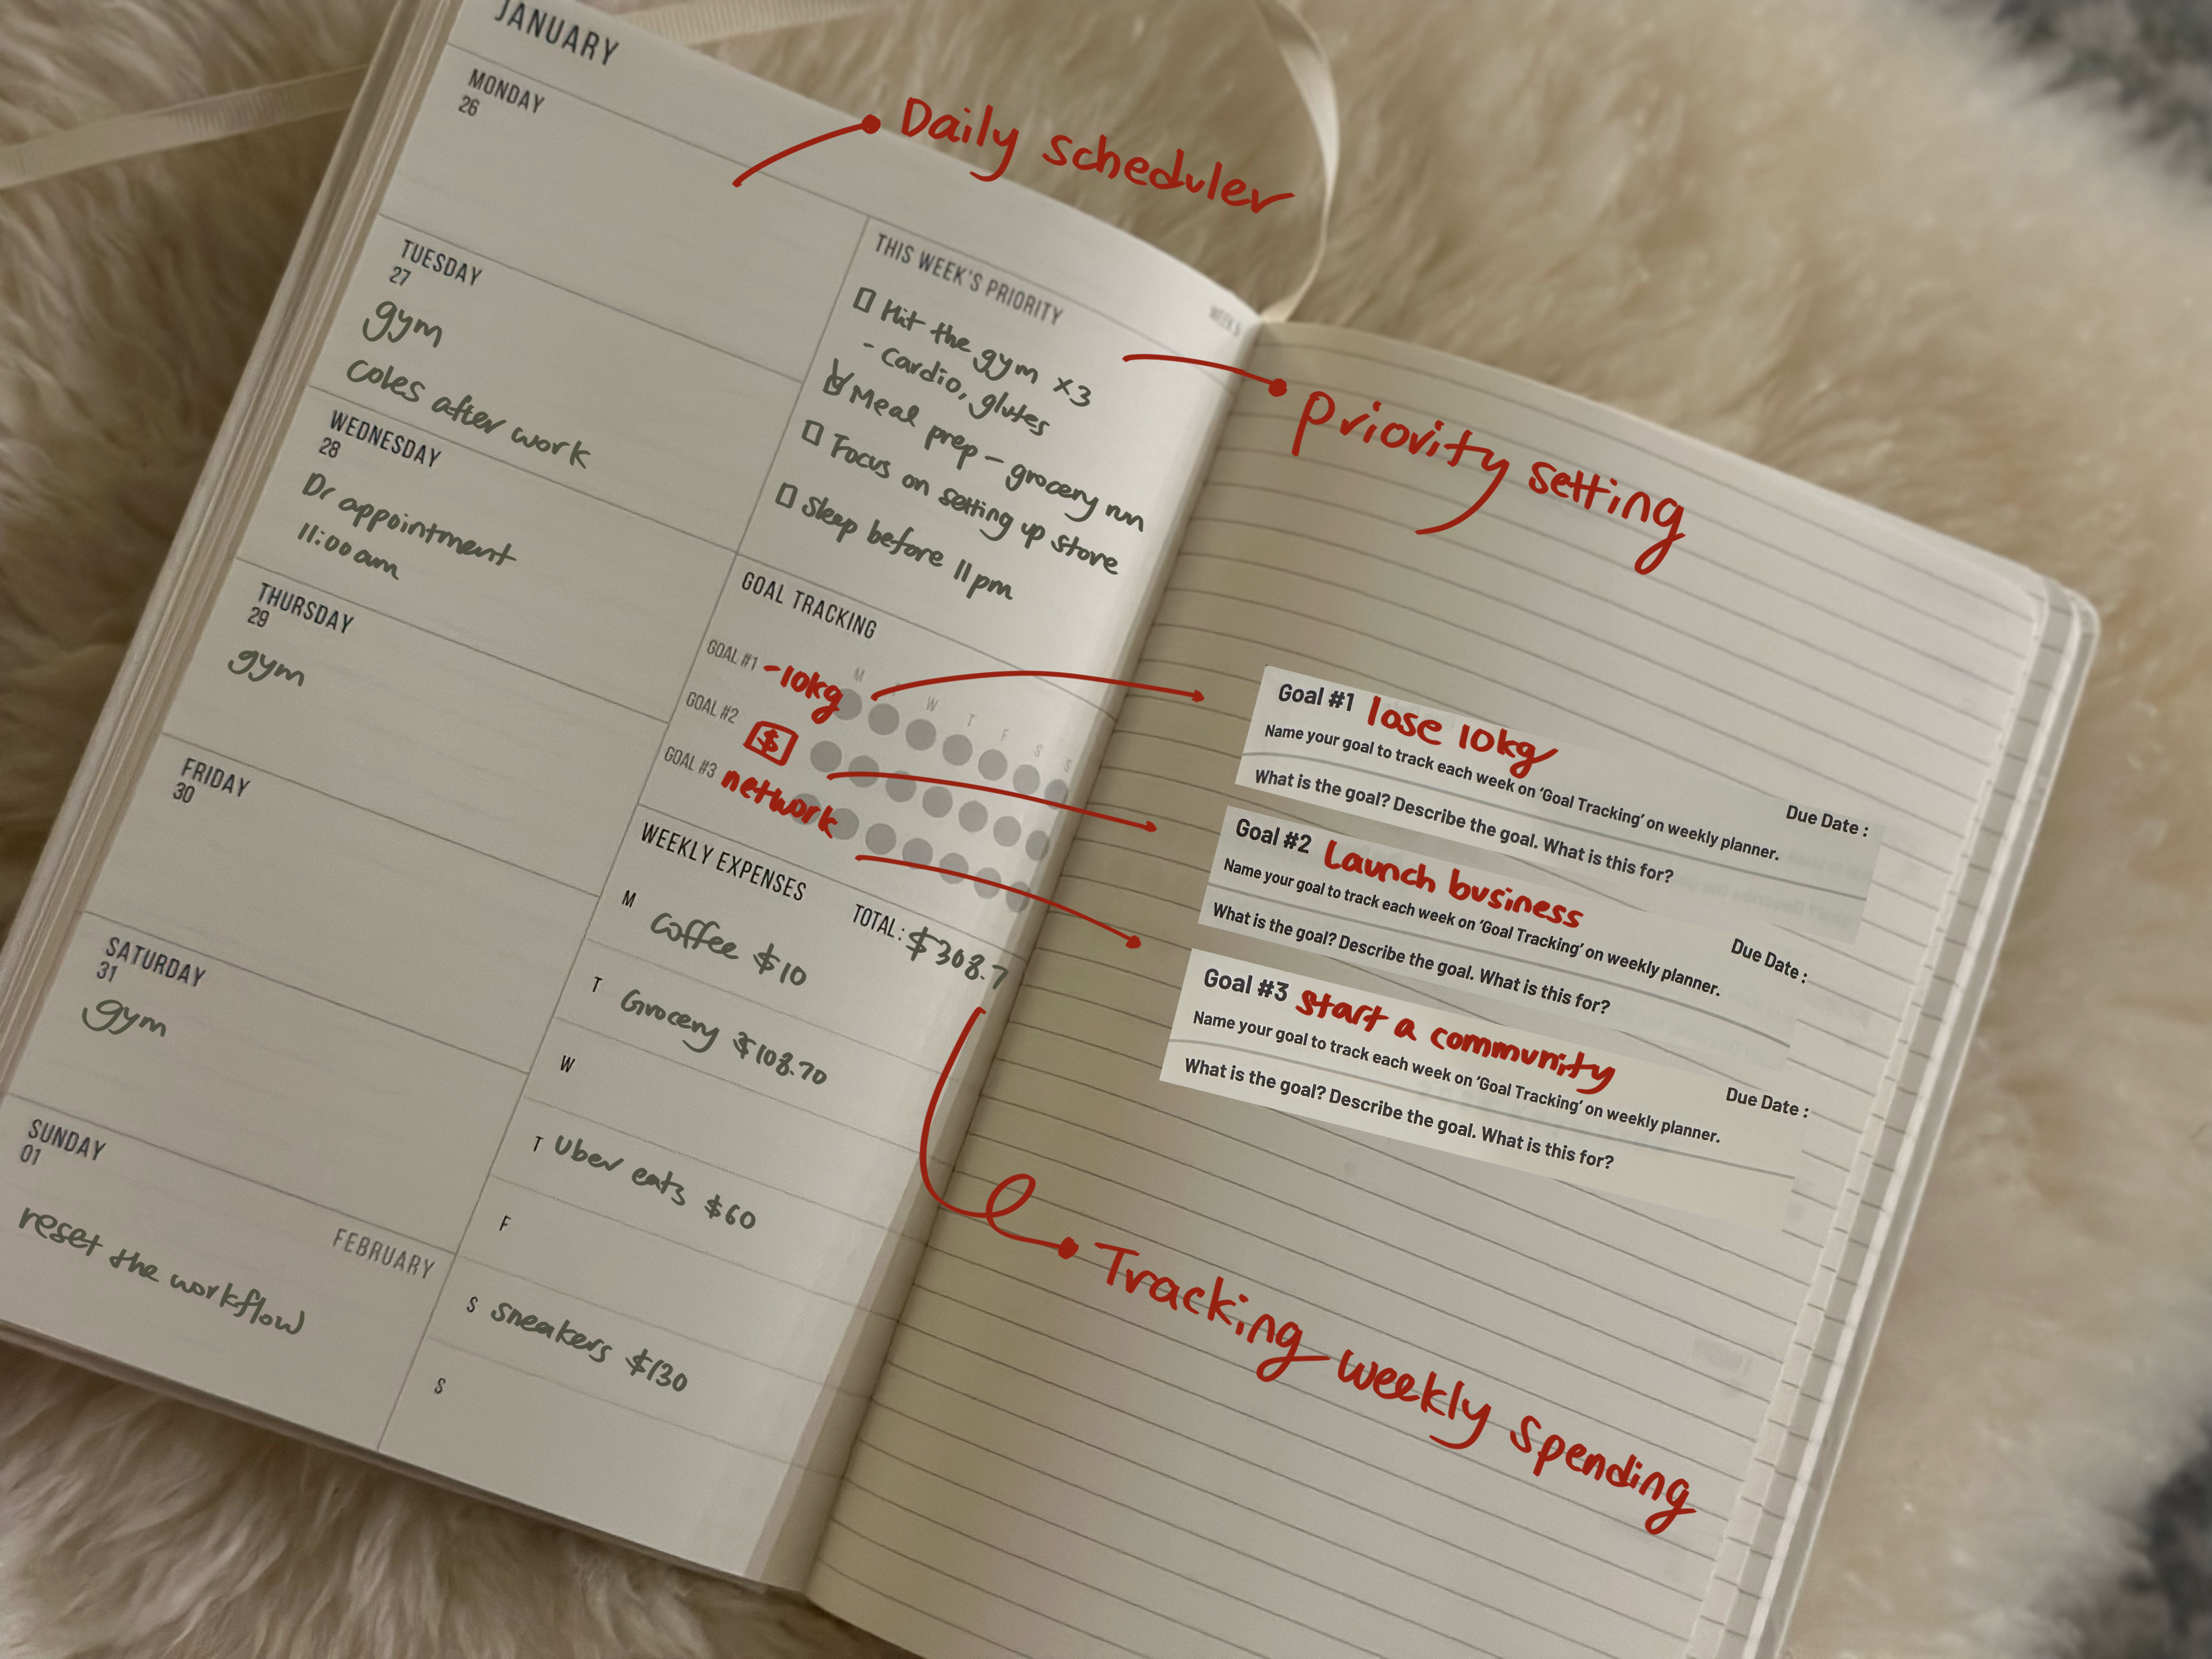 JANUARY
Daily scheduler
MONDAY
26
TUESDAY
27
gym
coles after work
WEDNESDAY
28
Dr appointment
11:00am
THURSDAY
29
gym
FRIDAY
30
SATURDAY
31
gym
SUNDAY
01
FEBRUARY
reset the workflow
THIS WEEK'S PRIORITY
WEEK 5
Hit the gym x3
- Cardio, glutes
Meal prep - grocery run
Focus on setting up store
Sleep before 11pm
Priority setting
GOAL TRACKING
M W T F S S
GOAL #1 -10kg
GOAL #2 $
GOAL #3 network
WEEKLY EXPENSES
TOTAL: $308.7
M Coffee $10
T Grocery $108.70
W
T Uber eats $60
F
S sneakers $130
S
Goal #1 lose 10kg
Name your goal to track each week on 'Goal Tracking' on weekly planner.
Due Date :
What is the goal? Describe the goal. What is this for?
Goal #2 Launch business
Name your goal to track each week on 'Goal Tracking' on weekly planner.
Due Date :
What is the goal? Describe the goal. What is this for?
Goal #3 start a community
Name your goal to track each week on 'Goal Tracking' on weekly planner.
Due Date :
What is the goal? Describe the goal. What is this for?
Tracking weekly spending